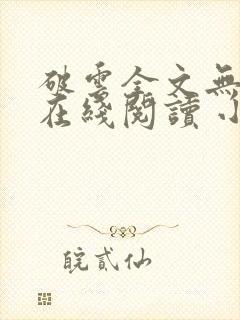 破雲全文無
在綫閱讀 小
皖貳仙